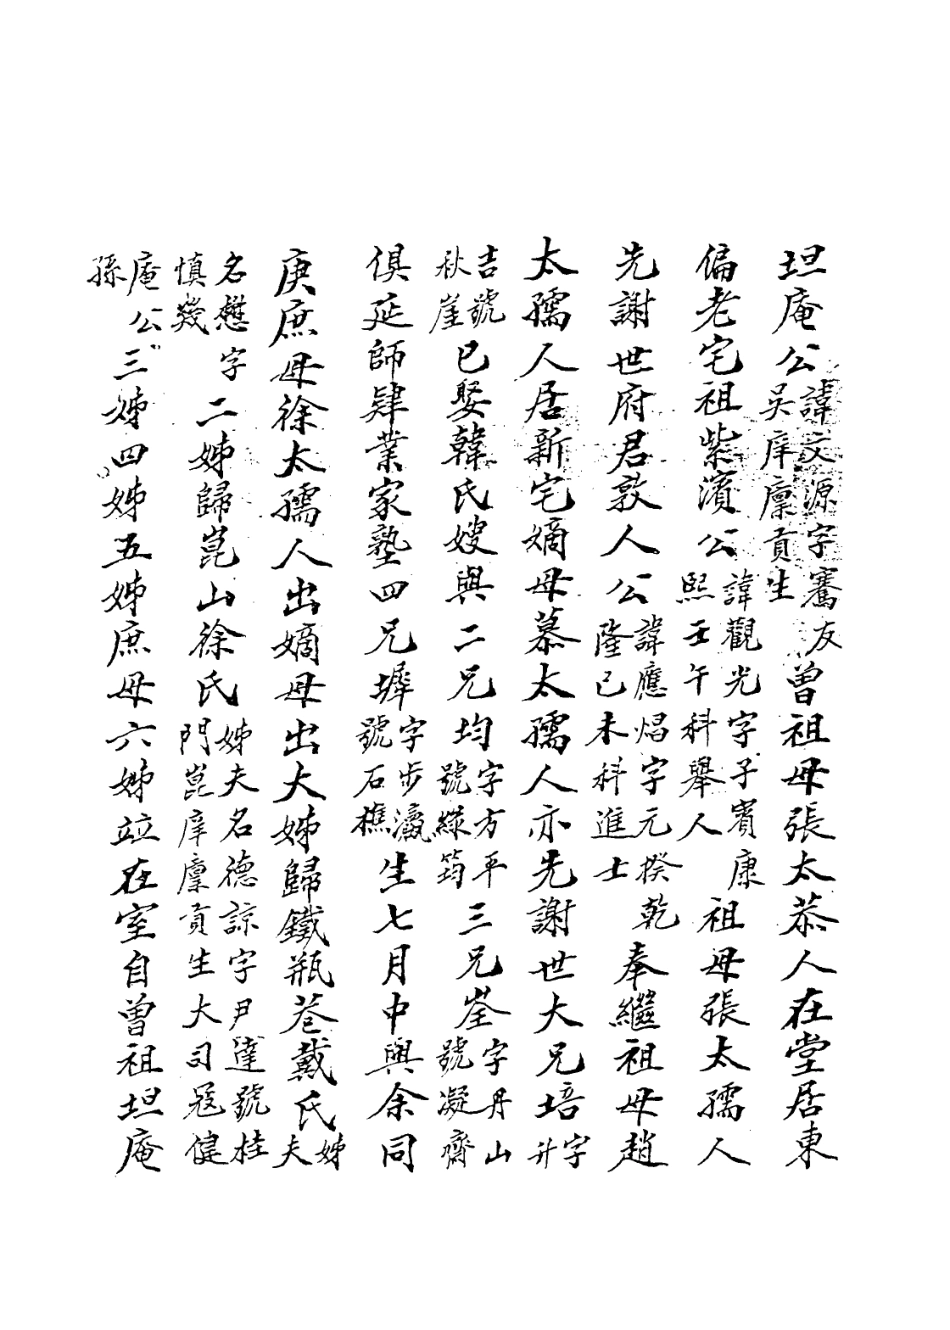 坦庵公諱文源字騫友吳庠廩貢生曾祖母張太恭人在堂居東
偏老宅祖紫濱公諱觀光字子賓康熙壬午科舉人祖母張太孺人
先謝世府君敦人公諱應焻字元揆乾隆己未科進士奉繼祖母趙
太孺人居新宅嫡母慕太孺人亦先謝世大兄培字升
吉號秋崖已娶韓氏嫂與二兄均字方平號綠筠三兄荃字丹山號凝齋
俱延師肄業家塾四兄墀字步瀛號石樵生七月中與余同
庚庶母徐太孺人出嫡母出大姊歸鐵瓶巷戴氏姊夫
名懋字慎幾二姊歸崑山徐氏姊夫名德諒字尹達號桂門崑庠廩貢生大司寇健
庵公孫三姊四姊五姊庶母六姊竝在室自曾祖坦庵